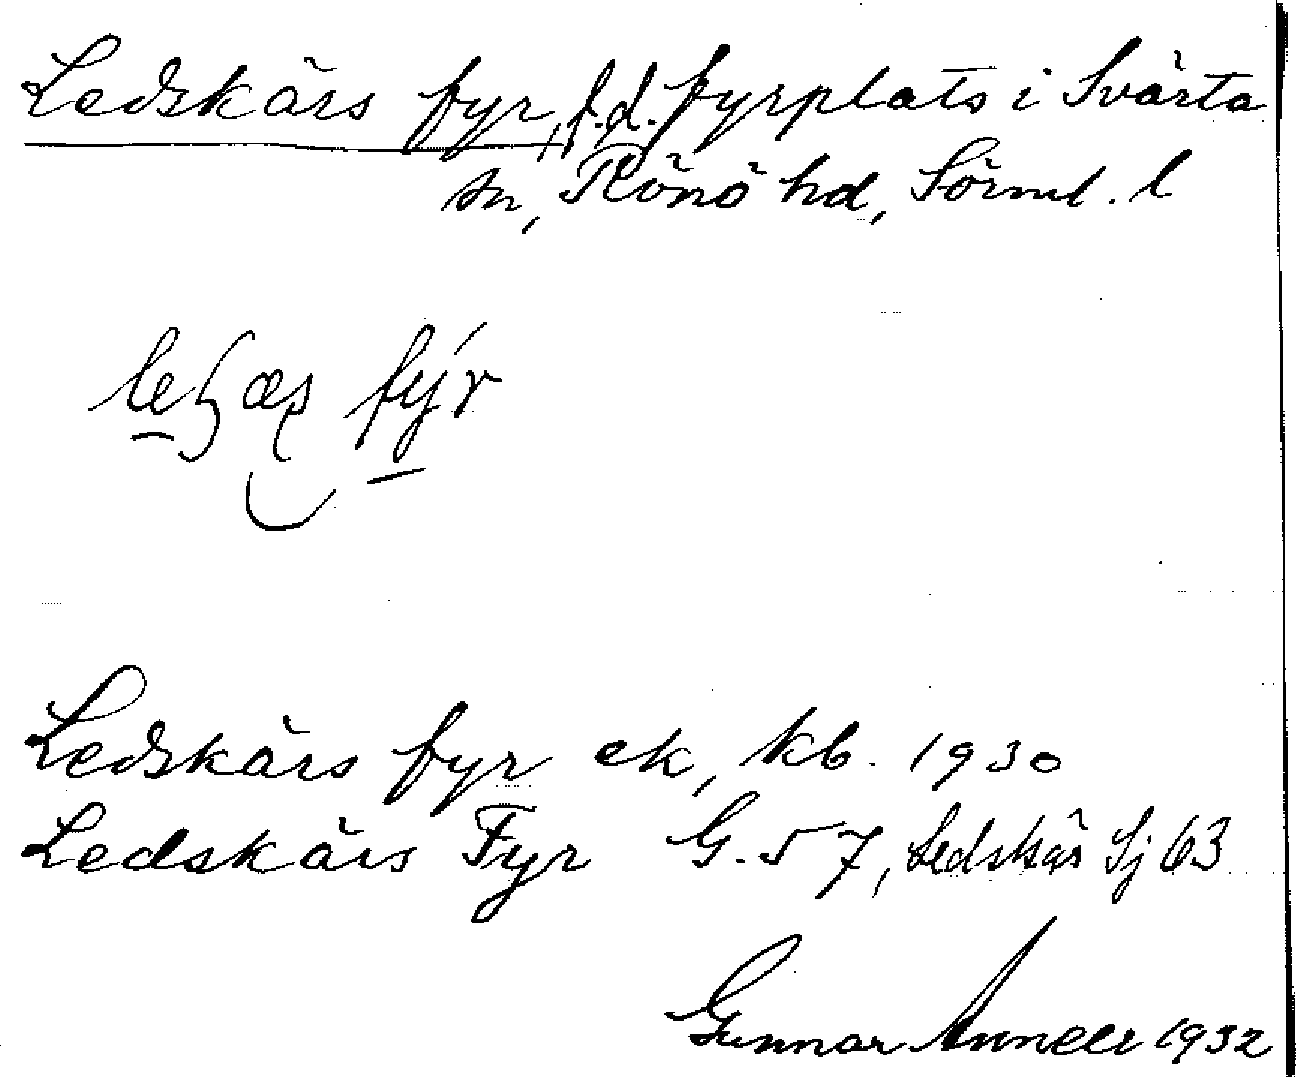 Ledskärs fyr, f.d. fyrplats i Svärta
sn, Rönö hd, Sörml. l
fý̱r
Ledskärs fyr ek, kb. 1930
Ledskärs Fyr G. 57, Ledskär Sj 63
Gunnar Annell 1932